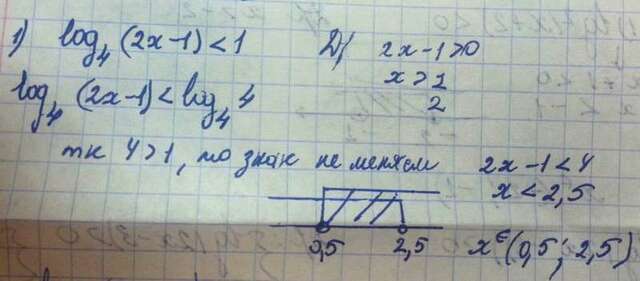 1) log₄ (2x-1) < 1 D/ 2x-1>0
x > 1/2
log₄ (2x-1) < log₄ 4
тк 4>1, то знак не меняем 2x-1<4
x < 2,5
0,5 2,5 x ∈ (0,5; 2,5)